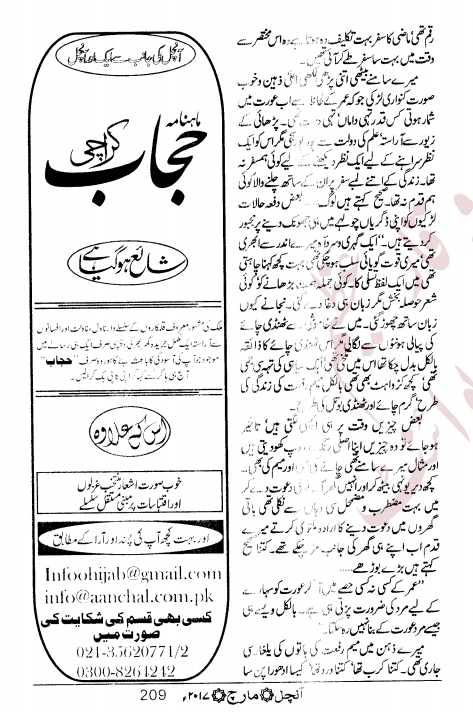 رقم تھی ماضی کا سفر بہت تکلیف دہ ہوتا ہے وہ اس مختصر سے
وقت میں بہت سا سفر طے کر آئی تھی۔
میرے سامنے بیٹھی اتنی پڑھی لکھی اعلیٰ ذہین و خوب
صورت کنواری لڑکی جو کہ عمر کے لحاظ سے اب عورت میں
شمار ہوتی کس قدر تہی داماں تہی دست تھی۔ پڑھائی کے
زیور سے آراستہ علم کی دولت سے پور پور تھی مگر اس کو ایک
نظر سراہنے کے لیے ایک نظر دیکھنے کے لیے کوئی ہمسفر نہ
تھا۔ زندگی کے اتنے لمبے سفر پر ان کے ساتھ چلنے والا کوئی
ہم قدم نہ تھا۔ صحیح کہتے ہیں لوگ بعض دفعہ حالات
لڑکیوں کو اپنی ڈگریاں چولہے میں ہی جھونک دینے پر مجبور
کر دیتے ہیں۔" ایک گہری سرد آہ میرے اندر سے ابھری
تھی میری قوت گویائی سلب ہو چکی تھی بہت کچھ کہنا چاہتی
تھی میں ایک لفظ تسلی کا۔ کوئی جملہ ہمت بڑھانے کو کوئی
شعر حوصلہ بخش مگر زبان ہی دغا دے گئی۔ نجانے کیوں
زبان ساتھ چھوڑ گئی۔ میں نے خاموشی سے ٹھنڈی چائے
کی پیالی ہونٹوں سے لگالی مگر اس ٹھنڈی چائے کا ذائقہ
بالکل بدل چکا تھا اس میں پتی تھی
تھی کچھ کڑواہٹ بھی تھی بالکل میم رفعت کی زندگی کی
طرح گرم چائے اور ٹھنڈی بوتل کی طرح۔
بعض چیزیں وقت پر ہی اچھی لگتی ہیں تاخیر
ہو جائے تو وہ چیزیں اپنا اصلی رنگ روپ کھو دیتی ہیں
اور مثال میرے سامنے تھی چائے کی بھی اور میم کی بھی۔
کچھ دیر یونہی بیٹھ کر اور انہیں گھر آنے کی دعوت دے کر
میں بہت مضطرب و مضمحل سی وہاں سے نکلی تھی باقی
گھروں میں دعوت دینے کا ارادہ ملتوی کرتے میرے
قدم اب اپنے ہی گھر کی جانب مڑ چکے تھے۔ کتنا صحیح
کہتے ہیں بڑے بوڑھے....
"عمر کے کسی نہ کسی حصے میں آ کر عورت کو سہارے
کے لیے مرد کی ضرورت پڑتی ہی ہے۔ بالکل ویسے ہی
جیسے مرد عورت کے بنا نہیں رہ سکتا۔"
میرے ذہن میں میم رفعت کی باتوں کی یلغار سی
جاری تھی۔ کتنا کرب تھا' کتنا درد تھا' کیسا ادھورا پن سا
آنچل کی جانب سے ایک اور آنچل
ماہنامہ
حجاب
کراچی
شائع ہو گیا ہے
ملک کی مشہور معروف قلمکاروں کے سلسلے وار ناول، ناولٹ اور افسانوں
سے آراستہ ایک مکمل جریدہ گھر بھر کی دلچسپی صرف ایک ہی رسالے میں
موجود جو آپ کی آسودگی کا باعث بنے گا اور وہ صرف "حجاب"
آج ہی ہاکر سے کہہ کر اپنی کاپی بک کرالیں۔
اس کے علاوہ
خوب صورت اشعار منتخب غزلوں
اور اقتباسات پر مبنی مستقل سلسلے
اور بہت کچھ آپ کی پسند اور آرا کے مطابق
Infoohijab@gmail.com
info@aanchal.com.pk
کسی بھی قسم کی شکایت کی
صورت میں
021-35620771/2
0300-8264242
آنچل مارچ ۲۰۱۷ء 209